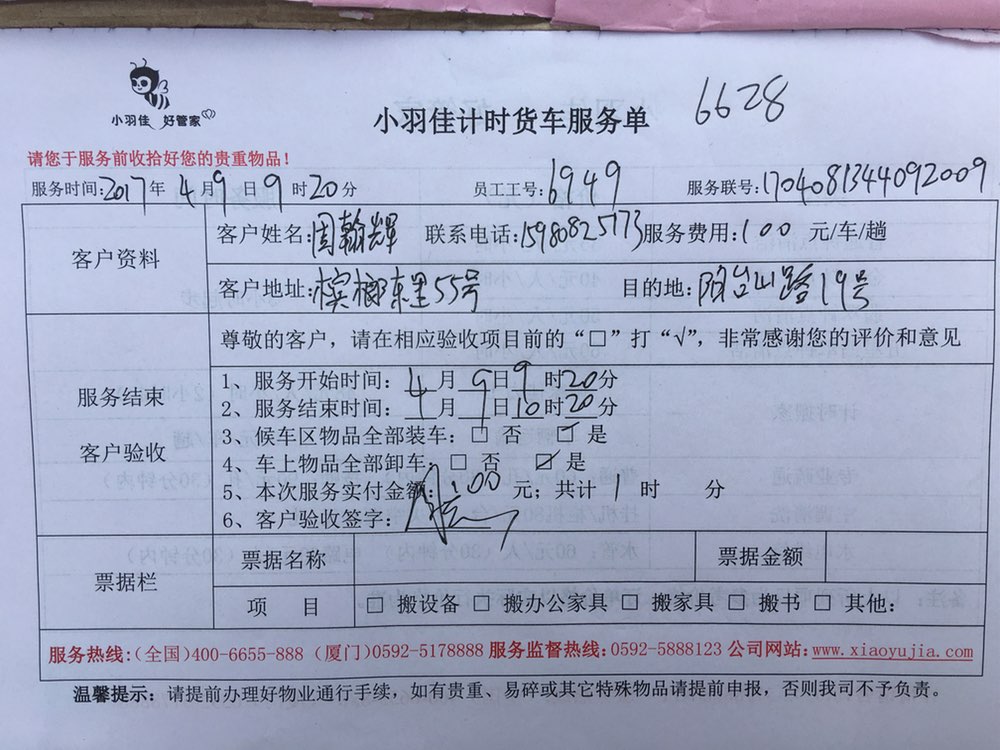 小羽佳 好管家
小羽佳计时货车服务单 6628
请您于服务前收拾好您的贵重物品！
服务时间:2017年 4月9日9时20分 员工工号:6949 服务联号:1704081344092009
客户资料
客户姓名:周翰辉 联系电话:15980825773 服务费用:100 元/车/趟
客户地址:槟榔东里55号 目的地:阳台山路19号
服务结束
客户验收
尊敬的客户，请在相应验收项目前的“□”打“√”，非常感谢您的评价和意见
1、服务开始时间：4月9日9时20分
2、服务结束时间：4月9日10时20分
3、候车区物品全部装车：□ 否 ☑ 是
4、车上物品全部卸车：□ 否 ☑ 是
5、本次服务实付金额:100 元；共计 1 时 分
6、客户验收签字：
票据栏
票据名称 票据金额
项 目 □ 搬设备 □ 搬办公家具 □ 搬家具 □ 搬书 □ 其他：
服务热线:(全国)400-6655-888 (厦门)0592-5178888 服务监督热线:0592-5888123 公司网站:www.xiaoyujia.com
温馨提示：请提前办理好物业通行手续，如有贵重、易碎或其它特殊物品请提前申报，否则我司不予负责。